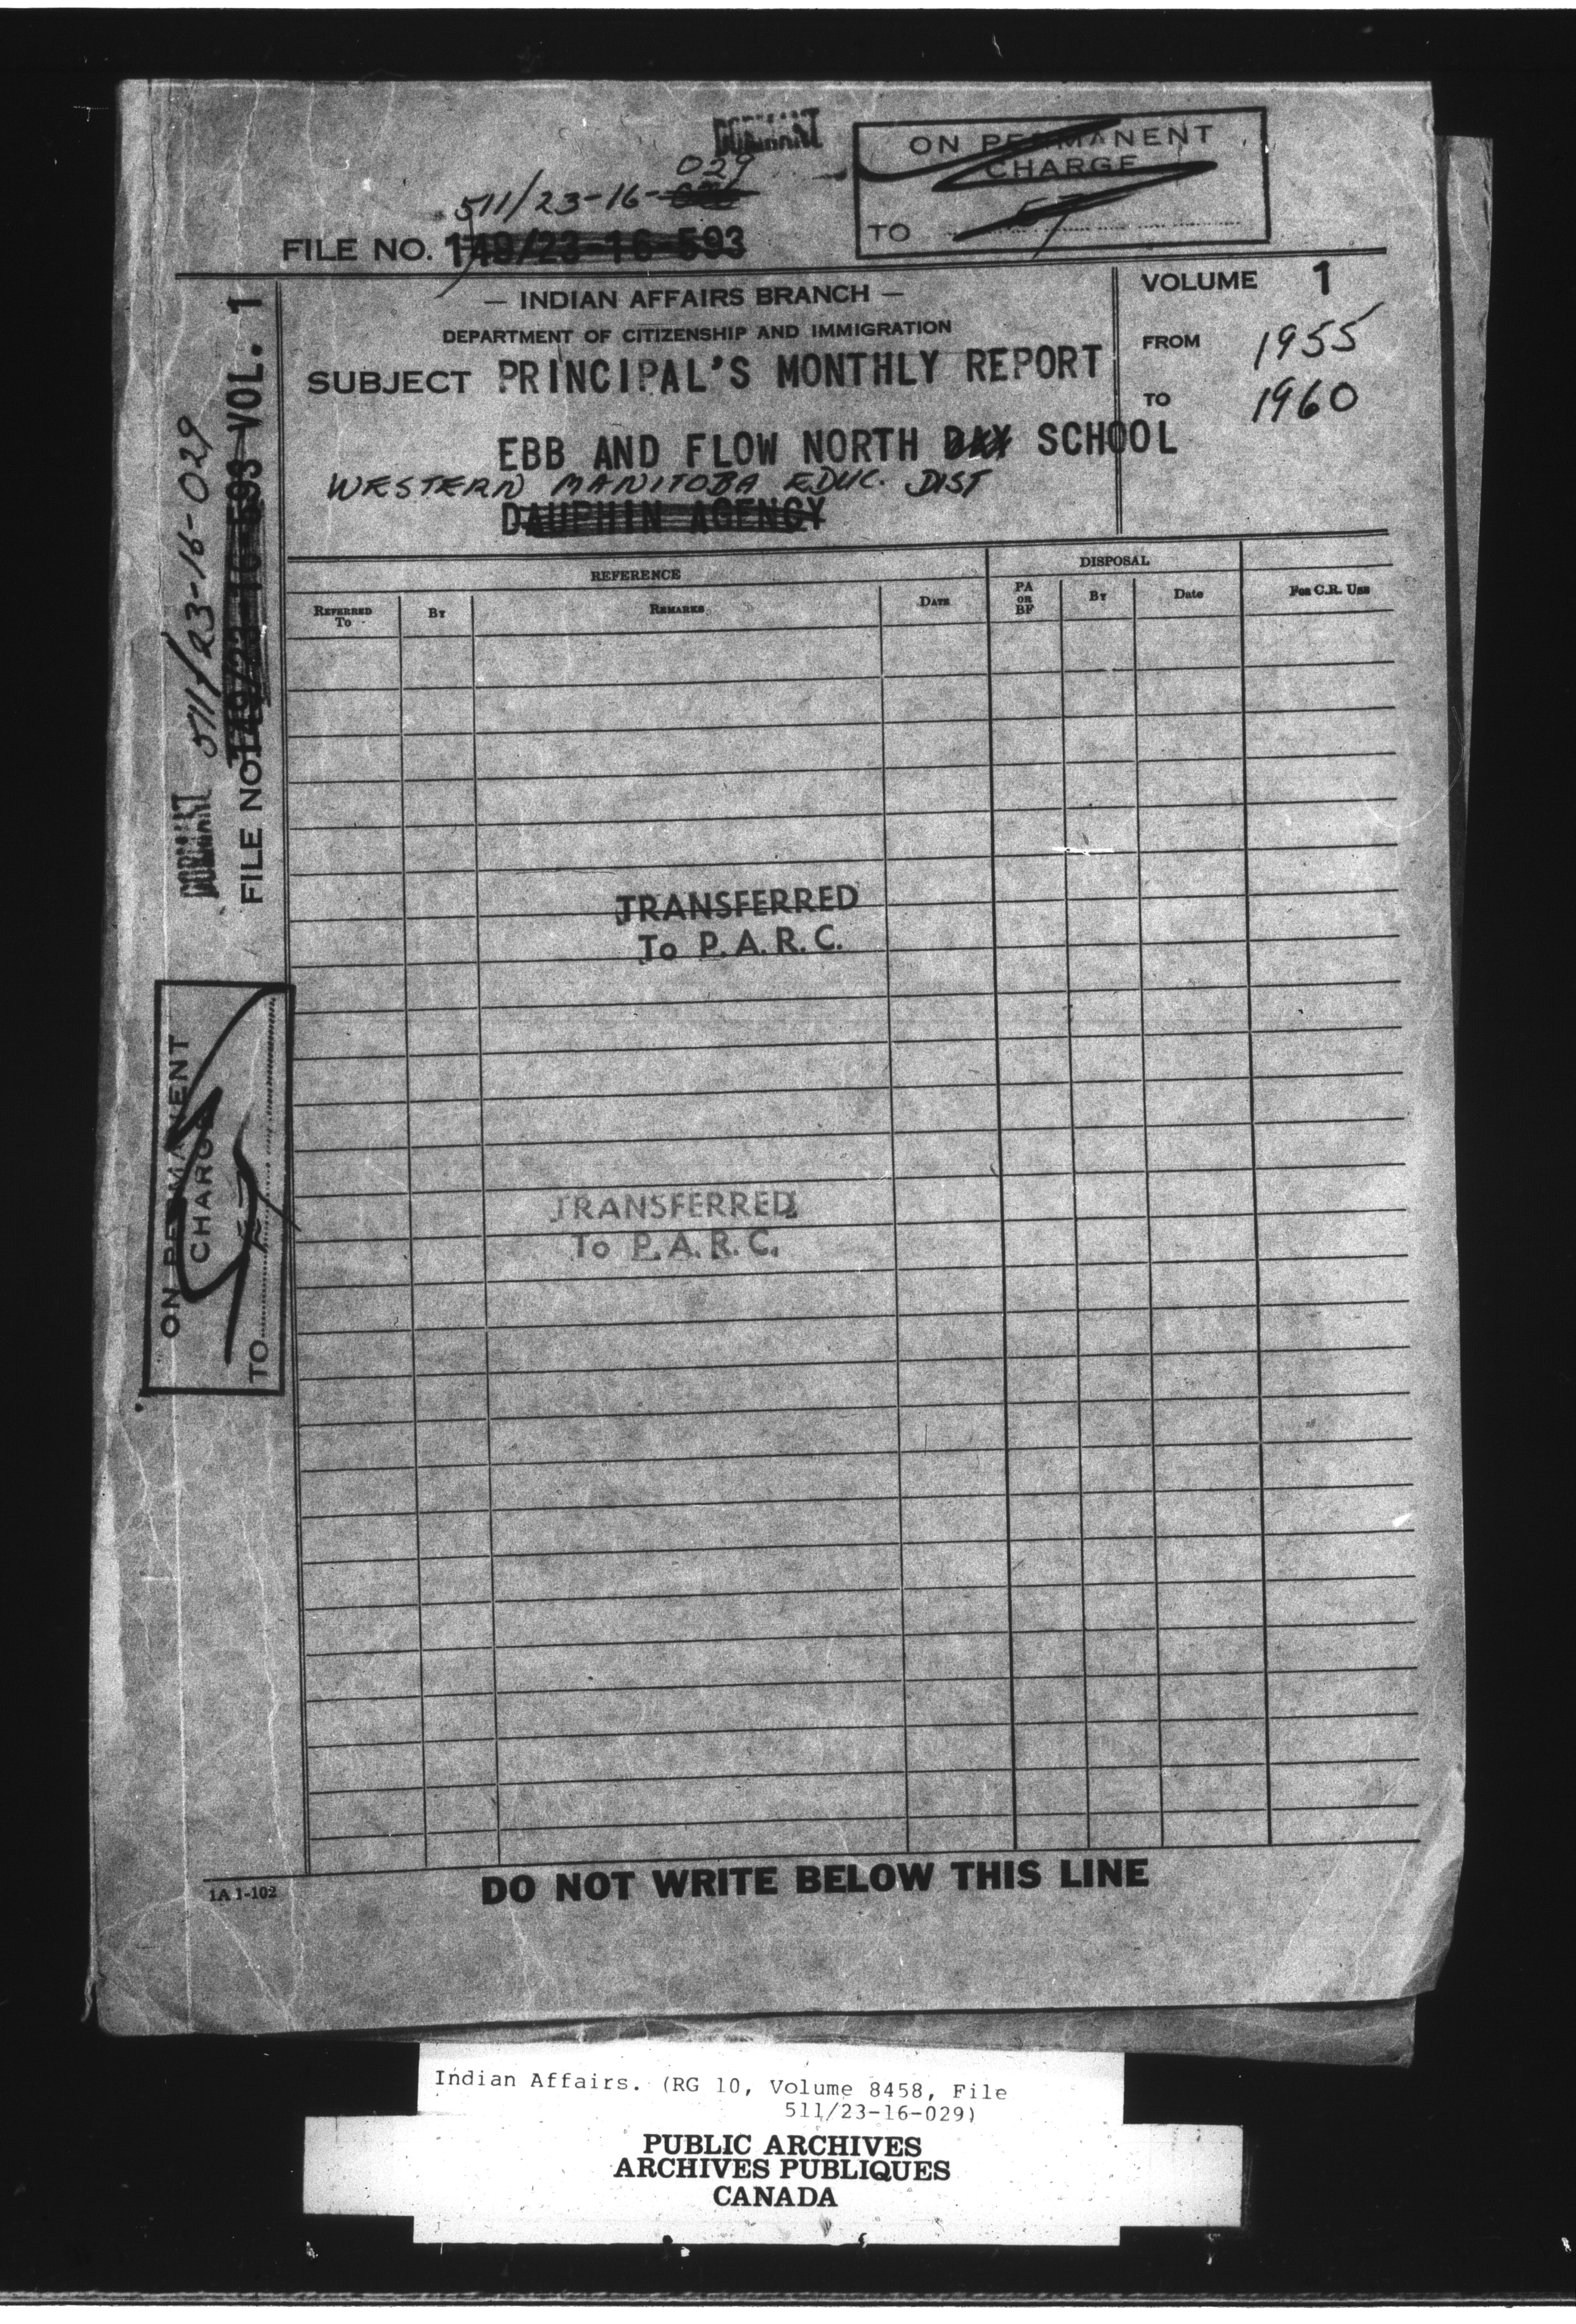 DORMANT
ON PERMANENT
CHARGE
TO
029
511/23-16-
FILE NO. 149/23-16-593
— INDIAN AFFAIRS BRANCH —
DEPARTMENT OF CITIZENSHIP AND IMMIGRATION
SUBJECT PRINCIPAL'S MONTHLY REPORT
EBB AND FLOW NORTH DAY SCHOOL
WESTERN MANITOBA EDUC. DIST
DAUPHIN AGENCY
VOLUME 1
FROM 1955
TO 1960
REFERENCE
DISPOSAL
REFERRED TO
BY
REMARKS
DATE
PA OR BF
BY
Date
FOR C.R. USE
TRANSFERRED
To P.A.R.C.
TRANSFERRED
To P.A.R.C.
511/23-16-029
FILE NO. 149/23-16-593 VOL. 1
DORMANT
ON PERMANENT
CHARGE
TO
1A 1-102
DO NOT WRITE BELOW THIS LINE
Indian Affairs. (RG 10, Volume 8458, File
511/23-16-029)
PUBLIC ARCHIVES
ARCHIVES PUBLIQUES
CANADA